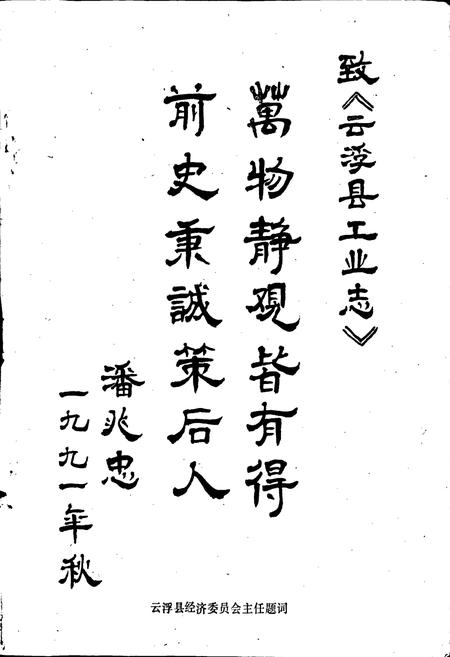 致《云浮县工业志》
萬物静观皆有得
前史秉誠策后人
潘兆忠
一九九一年秋
云浮县经济委员会主任题词